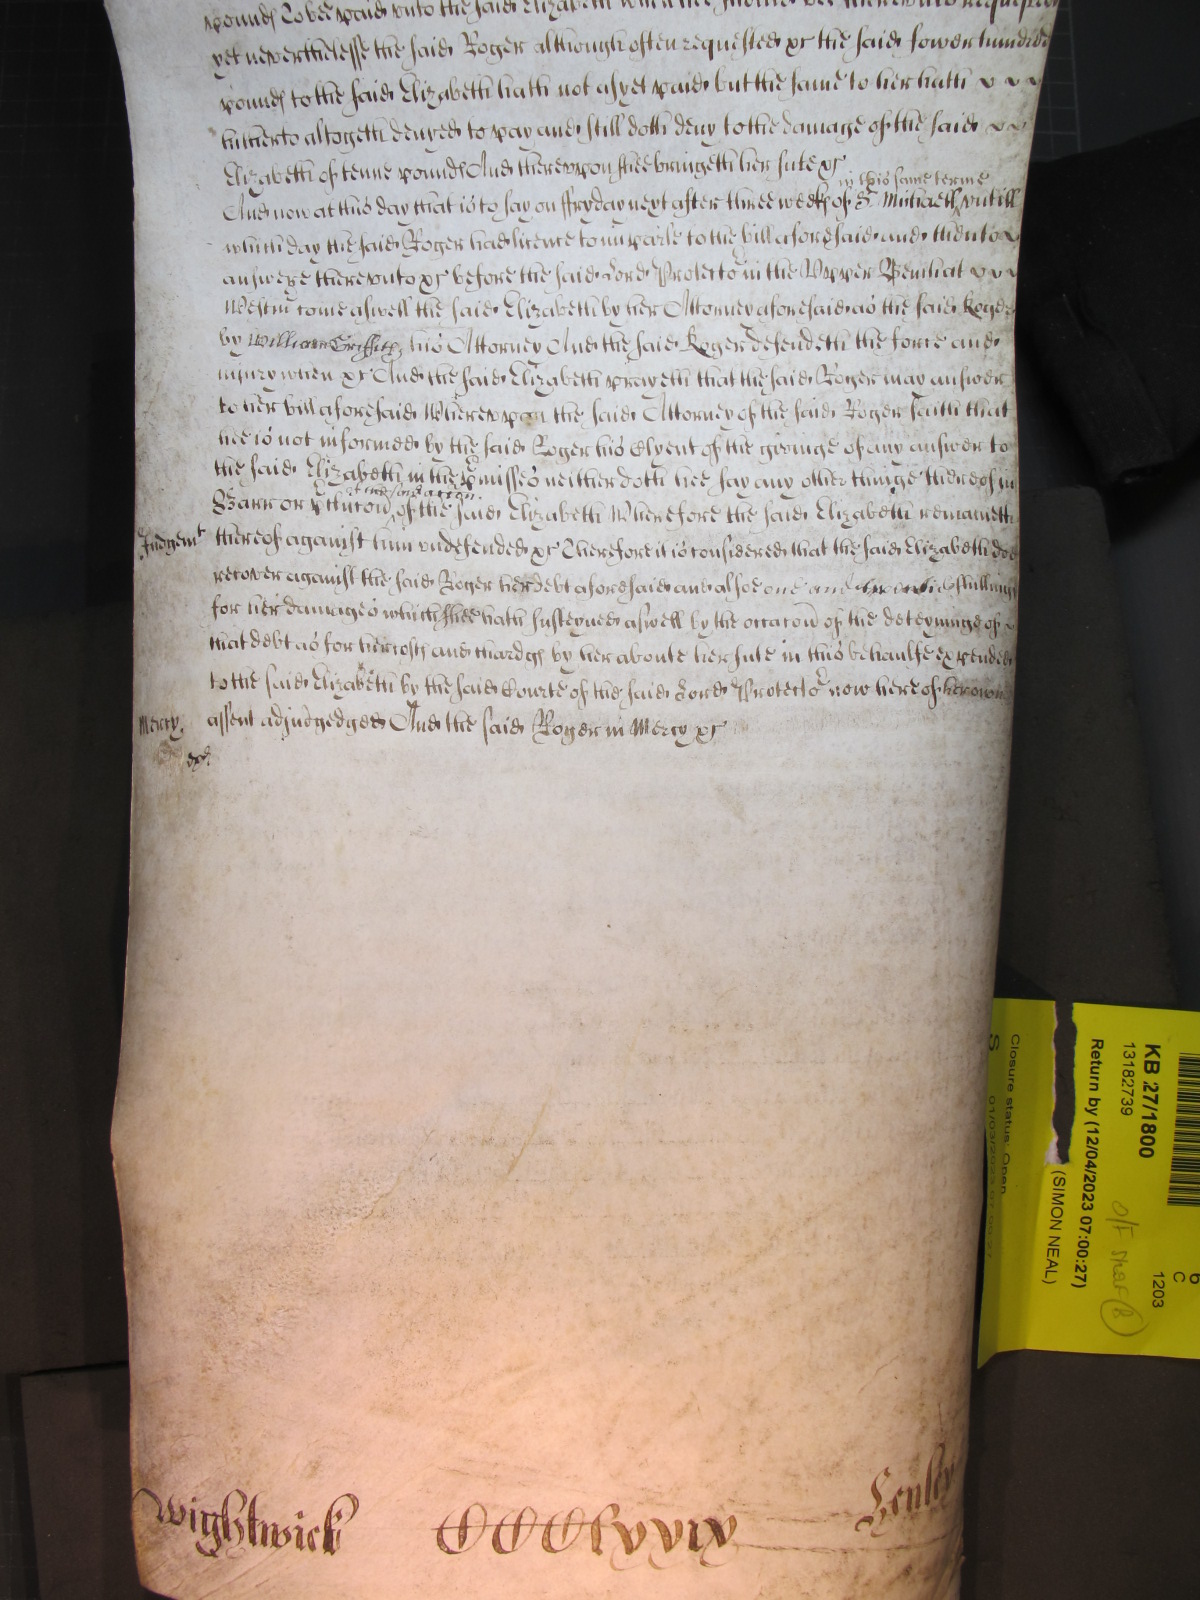 pounds To bee paid unto the said Elizabeth when hee should bee thereunto requested
yet neverthelesse the said Roger although often requested xc the said fower hundred
pounds to the said Elizabeth hath not as yet paid but the same to her hath
hitherto altogeth denyed to pay and still doth deny to the damage of the said
Elizabeth of tenne pounds And thereupon shee bringeth her sute xc
in this same terme
And now at this day that is to say on ffryday next after three weeks of St Michaell untill
which day the said Roger had licence to imparle to the bill aforesaid and then to
answere thereunto xc before the said Lord Protector in the Upper Bench at
Westm come aswell the said Elizabeth by her Attorney aforesaid as the said Roger
by William Griffith his Attorney And the said Roger defendeth the force and
injury when xc And the said Elizabeth prayeth that the said Roger may answer
to her bill aforesaid Whereupon the said Attorney of the said Roger saith that
hee is not informed by the said Roger his Clyent of the giveinge of any answer to
the said Elizabeth in the pmisses neither doth hee say any other thinge thereof in
of the said accon
Barr or of the said Elizabeth Wherefore the said Elizabeth remaineth
Judgemt
thereof against him undefended xc Therefore it is considered that the said Elizabeth doe
recover against the said Roger her debt aforesaid and alsoe one and shillings
for her damages which shee hath susteyned aswell by the occacon of the deteyninge of
that debt as for her costs and chardgs by her aboute her sute in this behaulfe expended
to the said Elizabeth by the said Courte of the said Lord Protector now here of her owne
Mercy.
assent adjudgedged And the said Roger in Mercy xc
Wightwick CCClxxix Henley
KB 27/1800
13182739
Return by (12/04/2023 07:00:27)
(SIMON NEAL)
Closure status: Open
S
1203
6
C